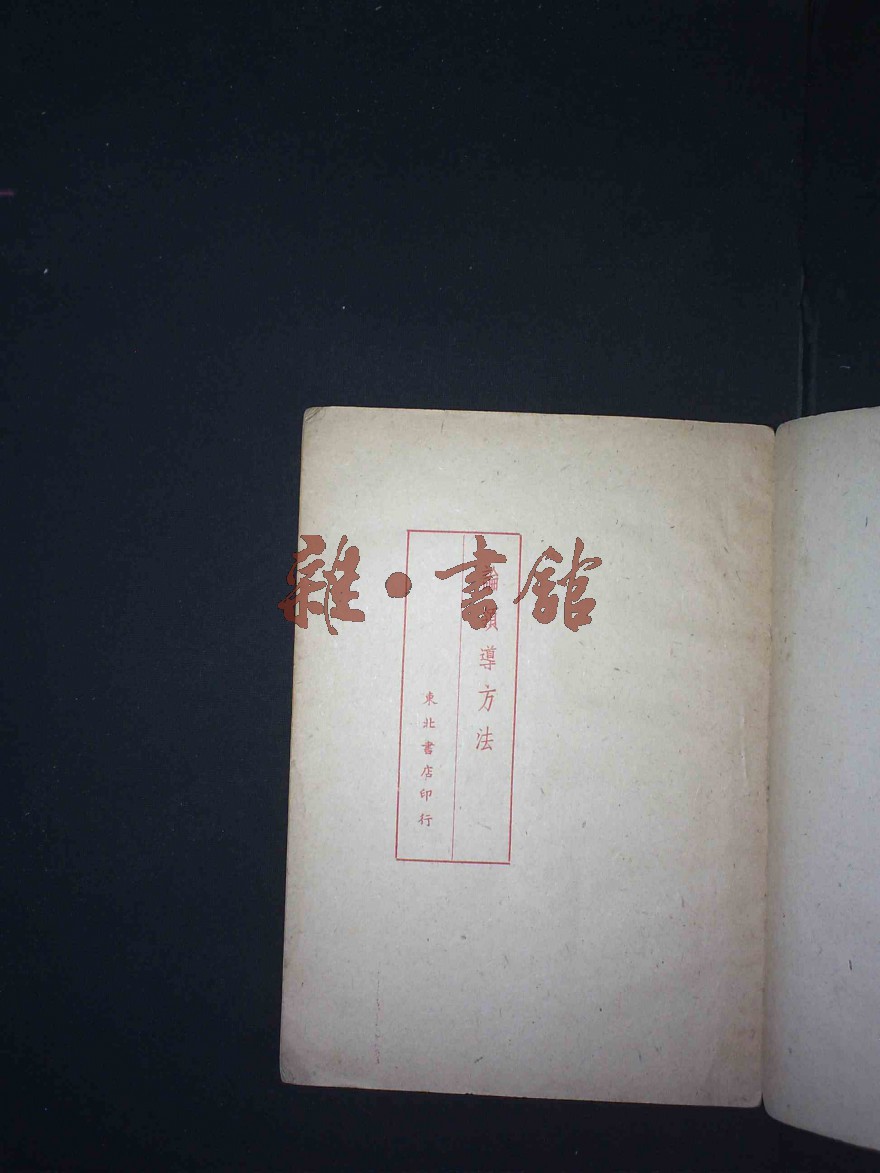 論領導方法
東北書店印行
雜·書館